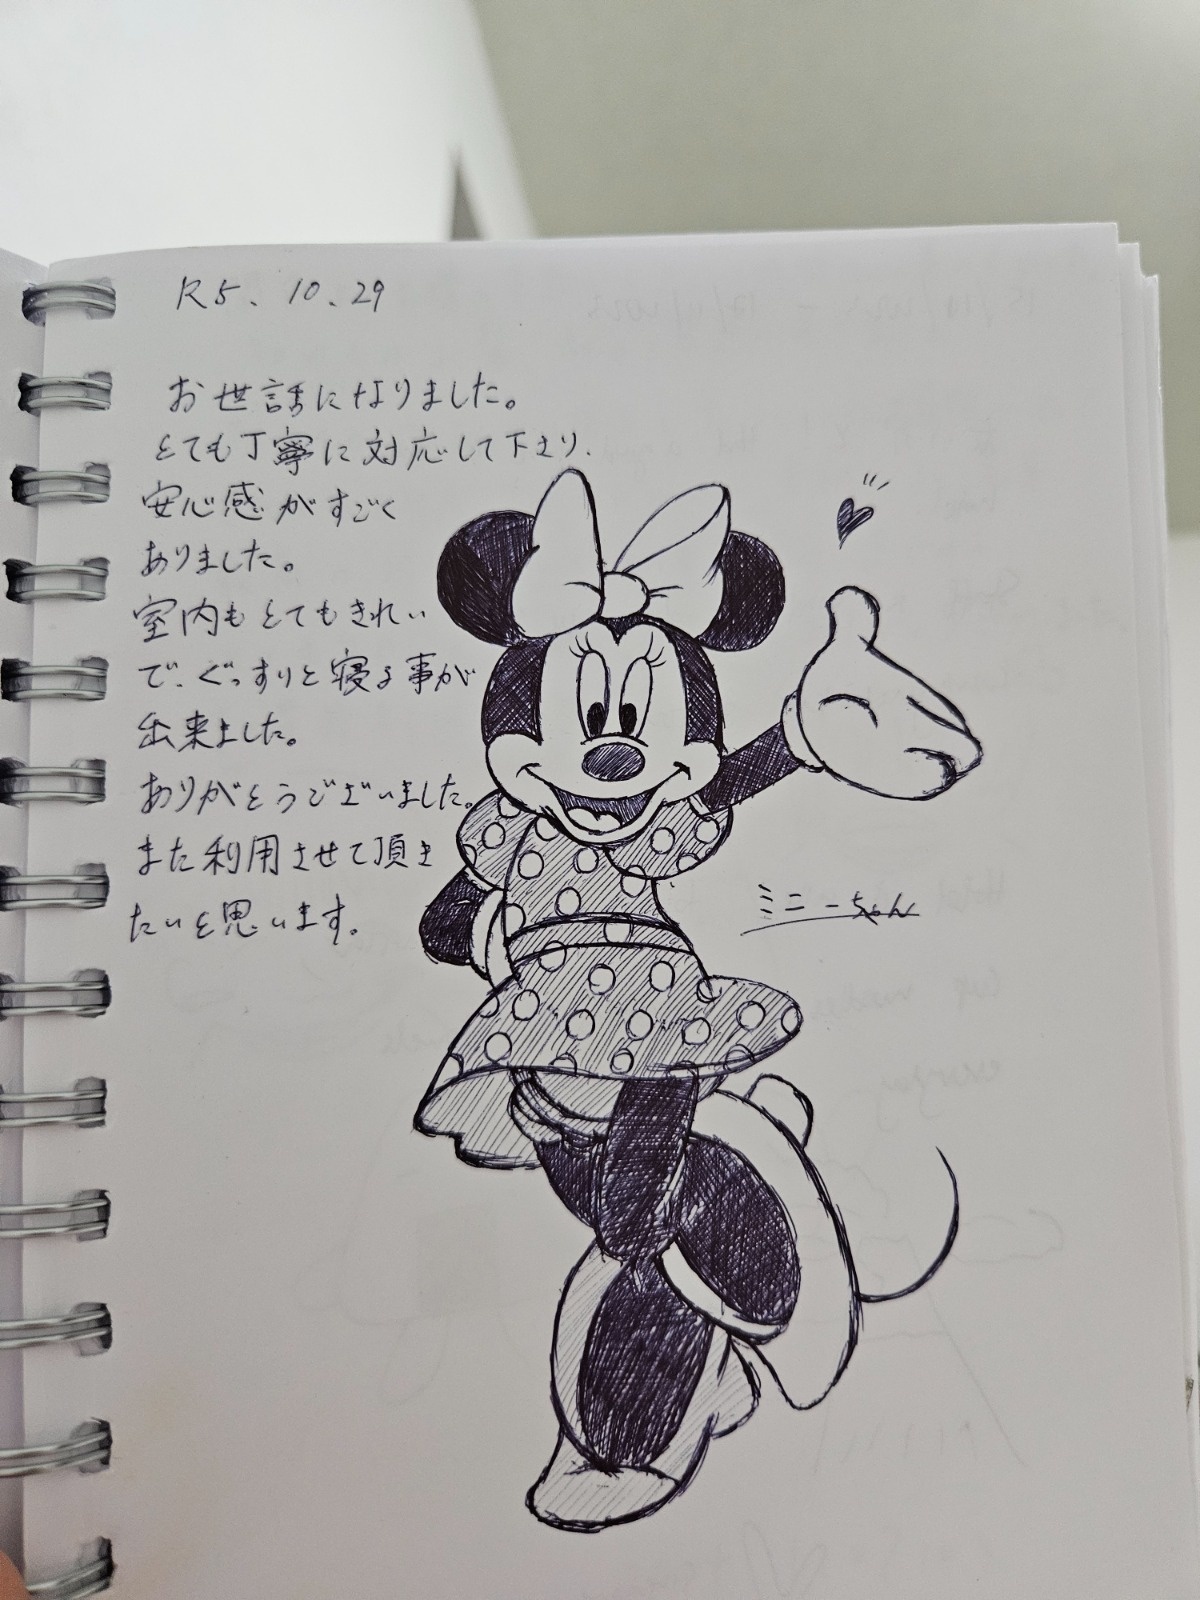 R5. 10. 29
お世話になりました。
とても丁寧に対応して下さり、
安心感がすごく
ありました。
室内もとてもきれい
で、ぐっすりと寝る事が
出来ました。
ありがとうございました。
また利用させて頂き
たいと思います。
ミニーちゃん